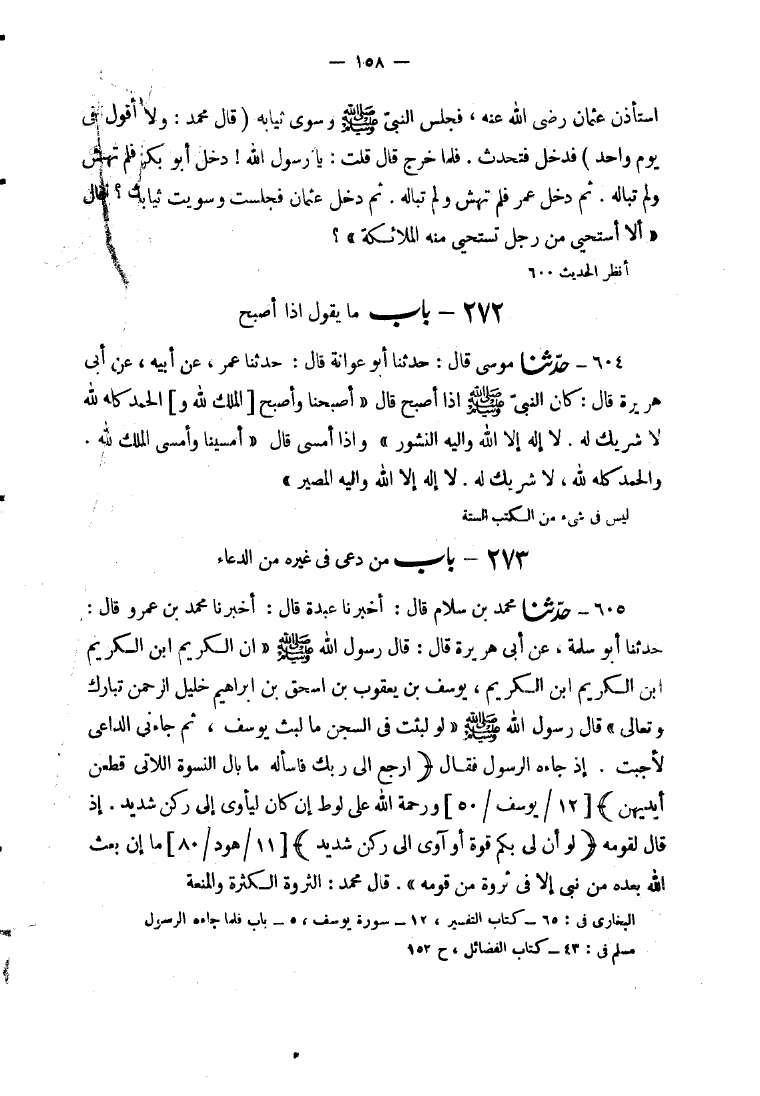 — ١٥٨ —
استأذن عثمان رضى الله عنه ، فجلس النبىّ ﷺ وسوى ثيابه ( قال محمد : ولا أقول فى
يوم واحد ) فدخل فتحدث . فلما خرج قال قلت : يا رسول الله ! دخل أبو بكر فلم تهش
ولم تباله . ثم دخل عمر فلم تهش ولم تباله . ثم دخل عثمان فجلست وسويت ثيابك ؟ قال
« ألا أستحيى من رجل تستحيى منه الملائكة » ؟
أنظر الحديث ٦٠٠
٢٧٢ – باب ما يقول اذا أصبح
٦٠٤ – حدّثنا موسى قال : حدثنا أبو عوانة قال : حدثنا عمر ، عن أبيه ، عن أبى
هريرة قال : كان النبىّ ﷺ اذا أصبح قال « أصبحنا وأصبح [ الملك لله و ] الحمد كله لله
لا شريك له . لا إله إلا الله واليه النشور » واذا أمسى قال « أمسينا وأمسى الملك لله .
والحمد كله لله ، لا شريك له . لا إله إلا الله واليه المصير »
ليس فى شىء من الكتب الستة
٢٧٣ – باب من دعى فى غيره من الدعاء
٦٠٥ – حدّثنا محمد بن سلام قال : أخبرنا عبدة قال : أخبرنا محمد بن عمرو قال :
حدثنا أبو سلمة ، عن أبى هريرة قال : قال رسول الله ﷺ « ان الكريم ابن الكريم
ابن الكريم ابن الكريم ، يوسف بن يعقوب بن اسحق بن ابراهيم خليل الرحمن تبارك
وتعالى » قال رسول الله ﷺ « لو لبثت فى السجن ما لبث يوسف ، ثم جاءنى الداعى
لأجبت . إذ جاءه الرسول فقال ﴿ ارجع الى ربك فاسأله ما بال النسوة اللاتى قطعن
أيديهن ﴾ [ ١٢ / يوسف / ٥٠ ] ورحمة الله على لوط إن كان ليأوى إلى ركن شديد . إذ
قال لقومه ﴿ لو أن لى بكم قوة أو آوى الى ركن شديد ﴾ [ ١١ / هود / ٨٠ ] ما إن بعث
الله بعده من نبى إلا فى ثروة من قومه » . قال محمد : الثروة الكثرة والمنعة
البخارى فى : ٦٥ – كتاب التفسير ، ١٢ – سورة يوسف ، ٥ – باب فلما جاءه الرسول
مسلم فى : ٤٣ – كتاب الفضائل ، ح ١٥٢